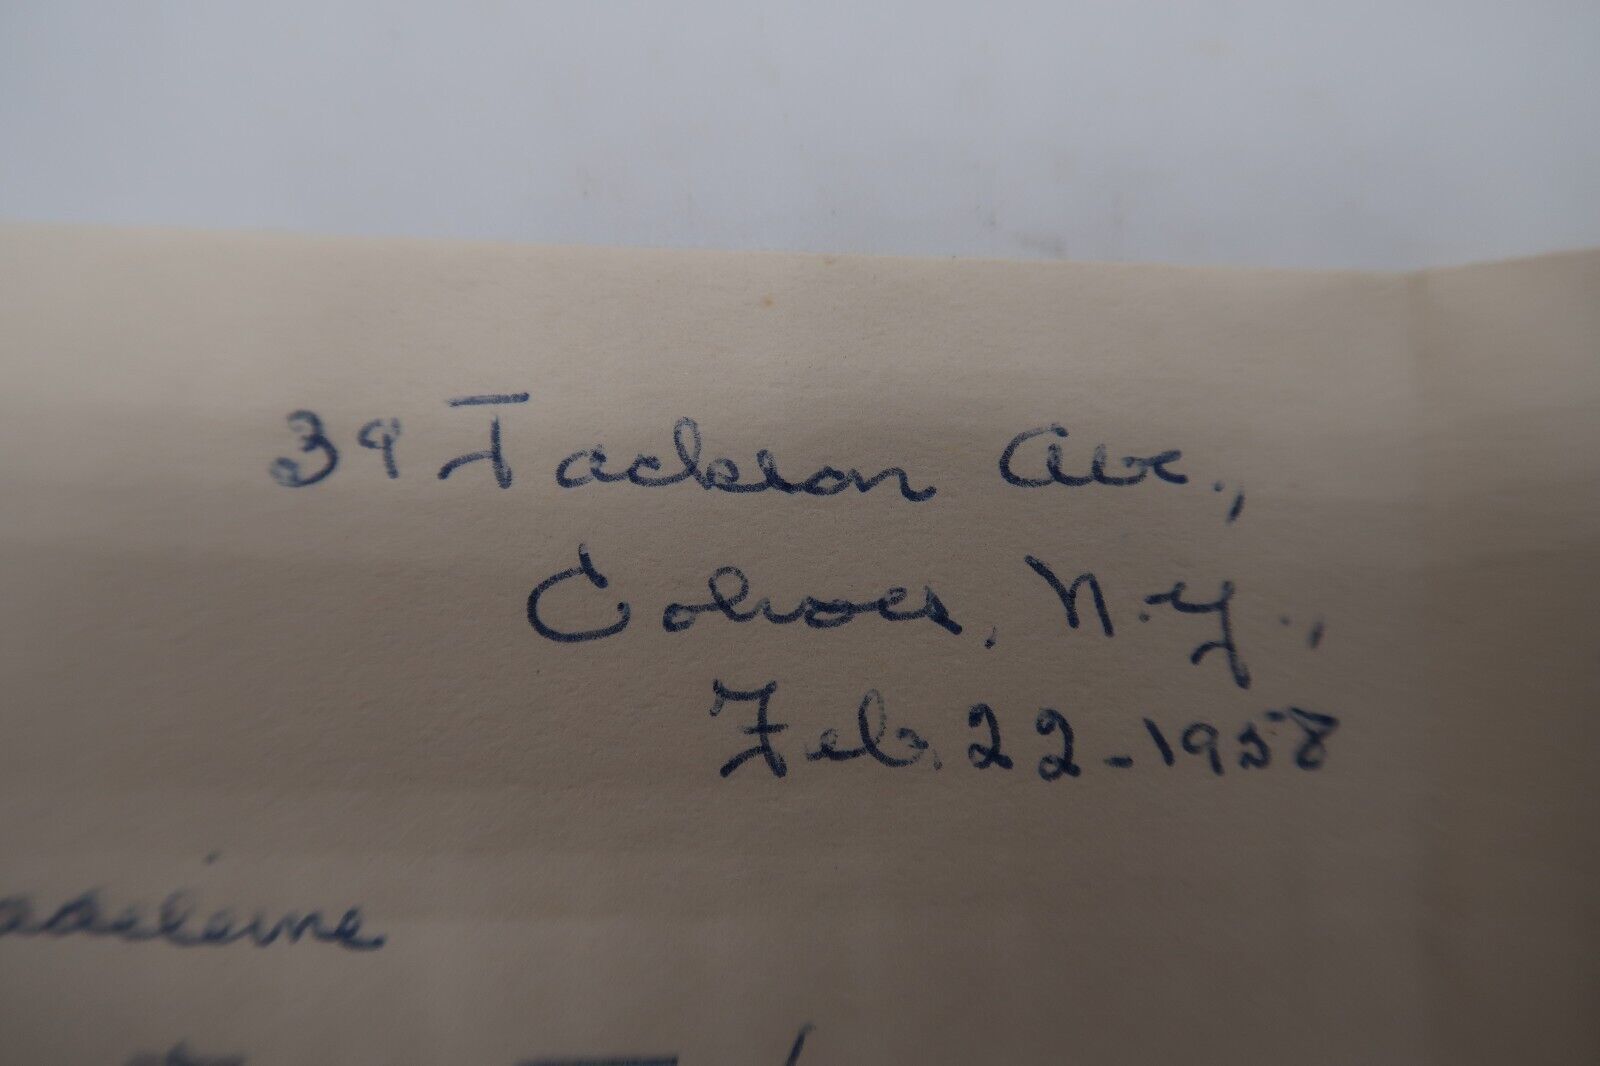 39 Jackson Ave.,
Cohoes, N.Y.,
Feb. 22-1958
adeleine